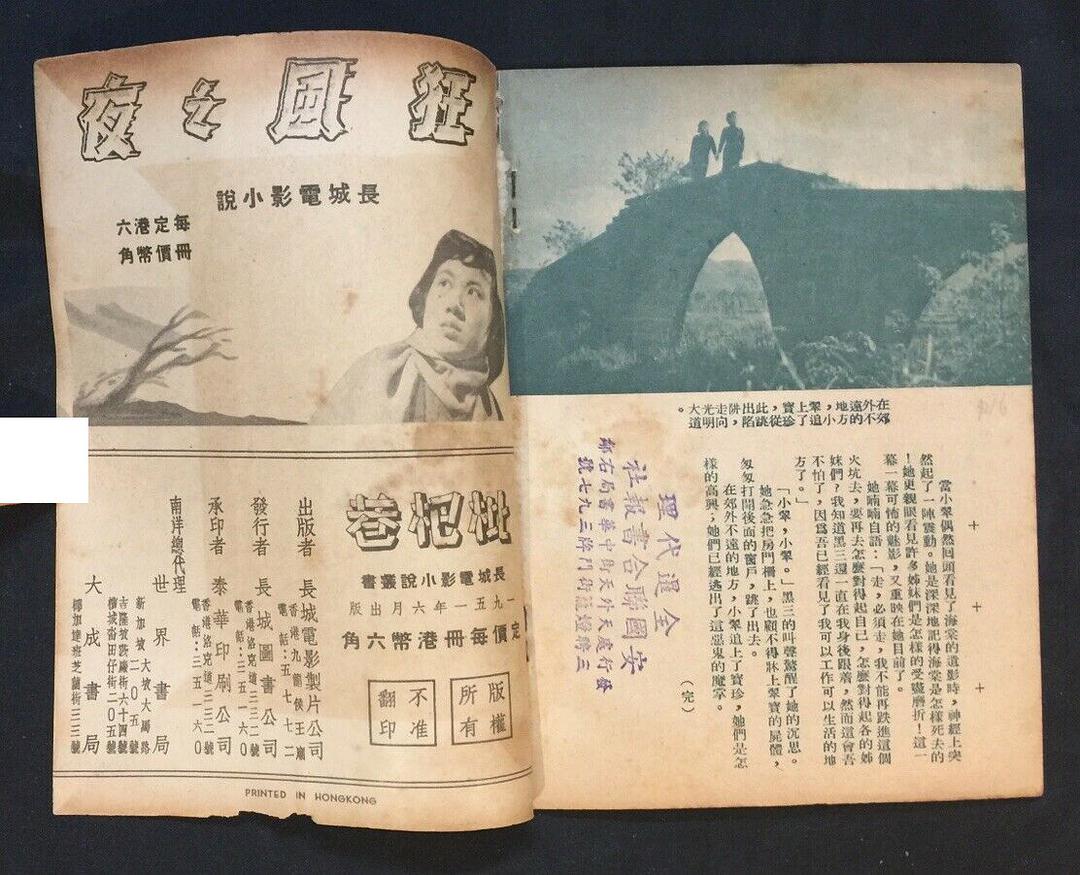 在郊外不遠的地方,小翠追上了寶珍,從此跳出陷阱,走向光明大道。
當小翠偶然回頭看見了海棠的遺影時,神經上突
然起了一陣震動。她是深深地記得海棠是怎樣死去的
!她更親眼看見許多姊妹們是怎樣的受殘磨折!這一
幕一幕可怖的魅影,又重映在她目前了。
她喃喃自語:「走,必須走,我不能再跌進這個
火坑去,要再去怎麼對得起自己,怎麼對得起各的姊
妹們?我知道黑三還一直在我身後跟着,然而這會吾
不怕了,因爲吾已經看見了我可以工作可以生活的地
方了。」
「小翠,小翠。」黑三的叫聲驚醒了她的沉思。
她急急把房門柵上,也顧不得牀上翠寶的屍體,
匆匆打開後面的窗戶,跳了出去。
在郊外不遠的地方,小翠追上了寶珍,她們是怎
樣的高興;她們已經逃出了這惡鬼的魔掌。
(完)
全暹代理
安國聯合書報社
發行處天外天街中華書局右鄰
門牌三九七號
狂風之夜
長城電影小說
每冊定價港幣六角
枇杷巷
長城電影小說叢書
一九五一年六月出版
定價每冊港幣六角
版權所有
不准翻印
出版者 長城電影製片公司
香港九龍侯王廟
電話:五七七七二
發行者 長城圖書公司
香港洛克道三三二號
電話:三五一六〇
承印者 泰華印刷公司
香港洛克道三三二號
電話:三五一六〇
南洋總代理
世界書局
新加坡大坡大馬路二〇五號
吉隆坡諧街六十四號
檳城沓田仔街二〇五號
大成書局
椰加達班芝蘭街三三號
PRINTED IN HONGKONG